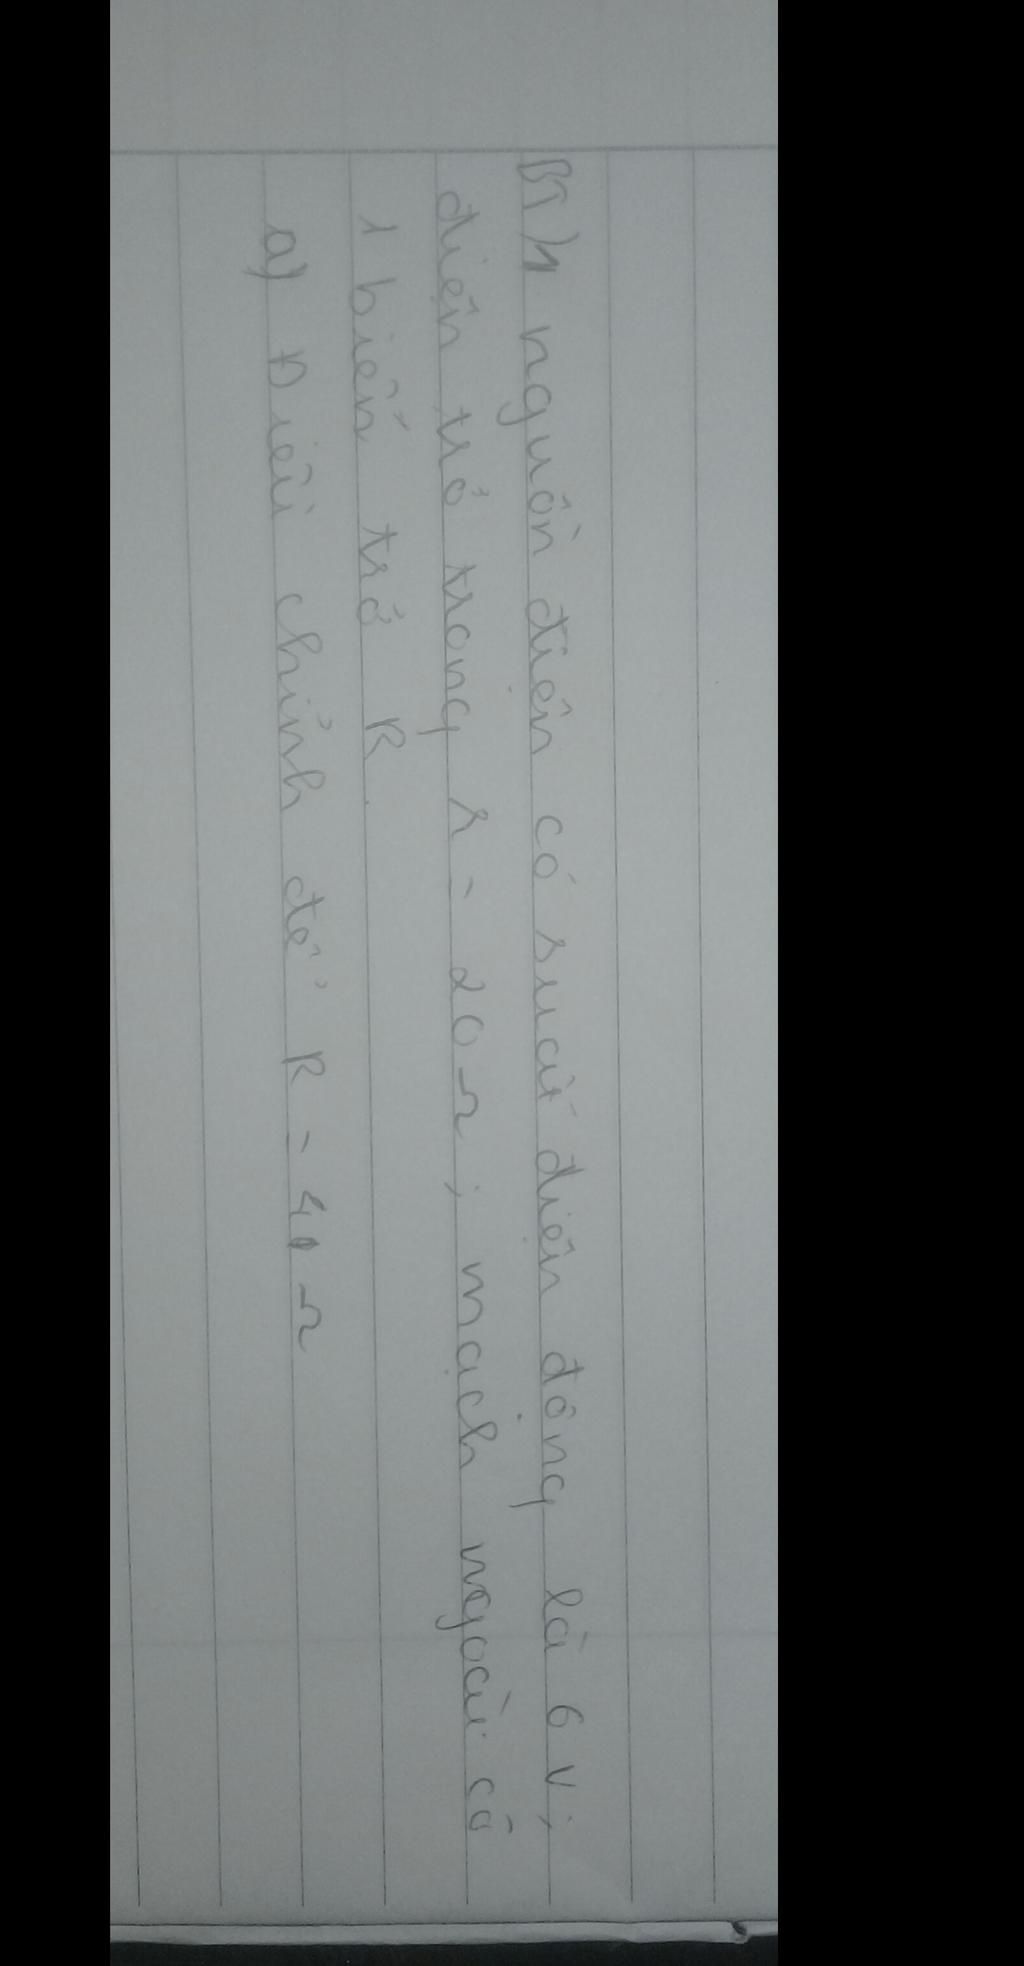 BT/1 nguồn điện có suất điện động là 6 V;
điện trở trong r = 20 Ω; mạch ngoài có
1 biến trở R.
a) Điều chỉnh để R = 40 Ω